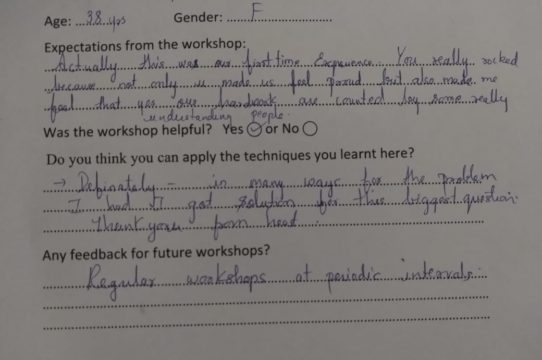 Age: 38 yrs Gender: F
Expectations from the workshop:
Actually this was our first time Experience. You really rocked
because not only u made us feel proud but also made me
feel that yes our hardwork are counted by some really
understanding people.
Was the workshop helpful? Yes or No
Do you think you can apply the techniques you learnt here?
→ Definately - in many ways for the problem
I had I got solution for this biggest question.
Thank you from heart.
Any feedback for future workshops?
Regular workshops at periodic intervals.